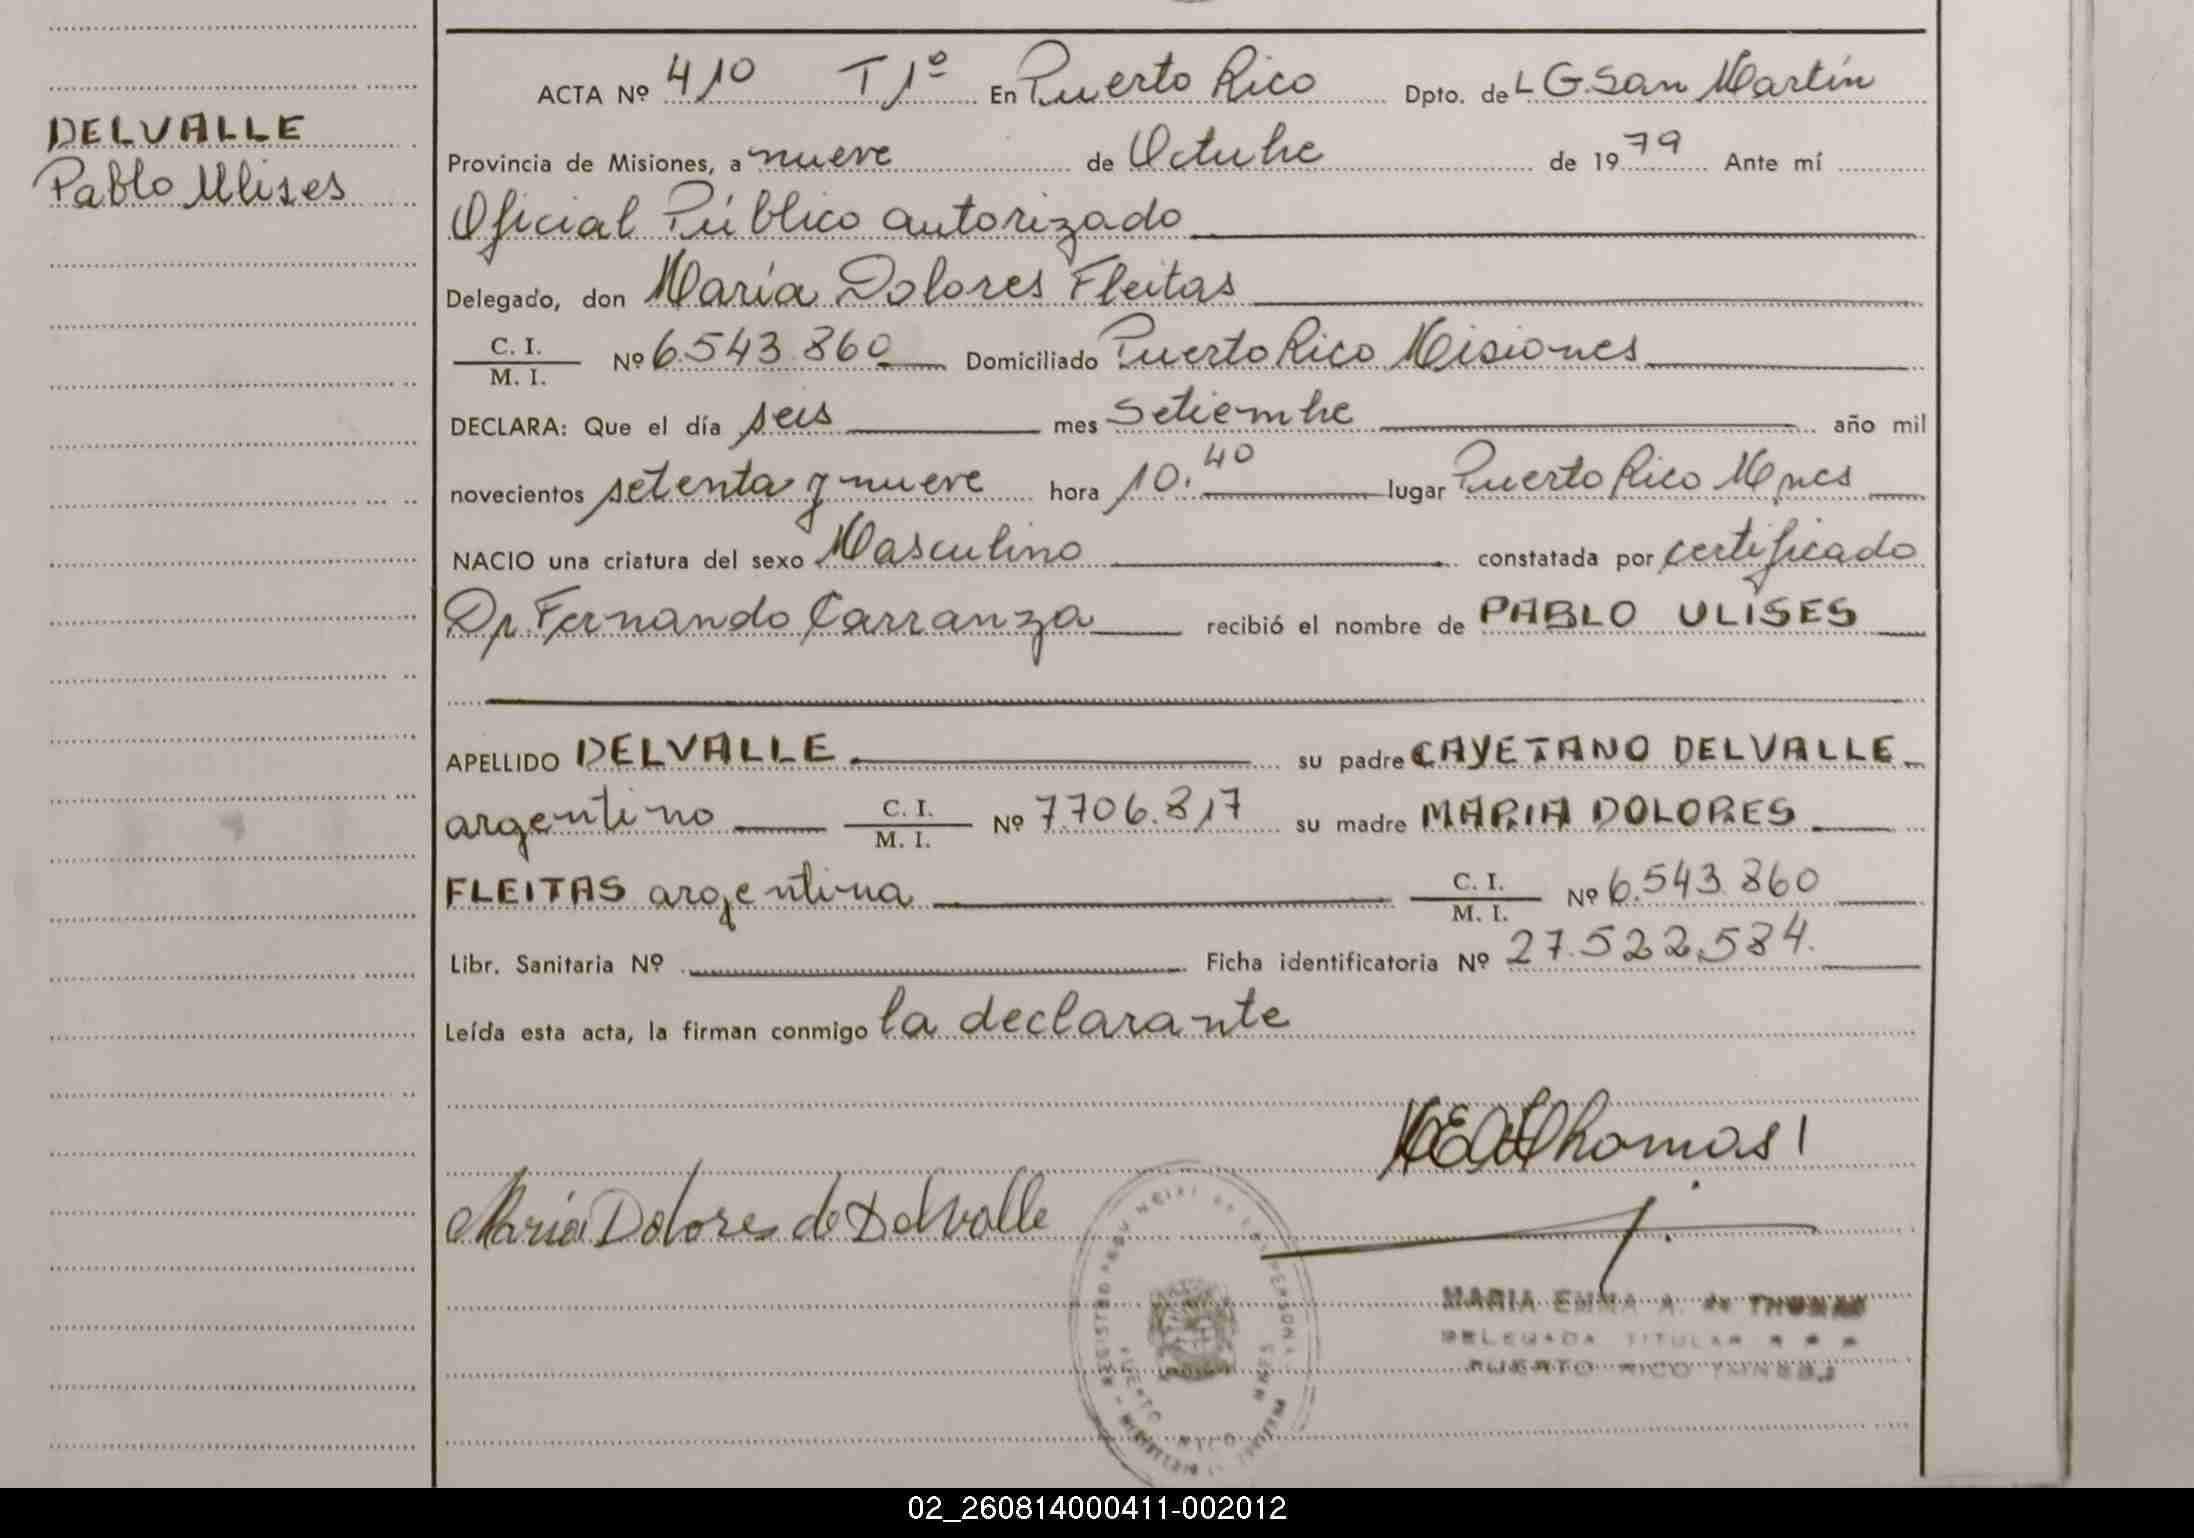 DELVALLE
Pablo Ulises
ACTA Nº 410 T 1º En Puerto Rico Dpto. de L G. San Martín
Provincia de Misiones, a nueve de Octubre de 1979 Ante mí
Oficial Público autorizado
Delegado, don María Dolores Fleitas
C. I. / M. I. Nº 6.543.860 Domiciliado Puerto Rico Misiones
DECLARA: Que el día seis mes Setiembre año mil
novecientos setenta y nueve hora 10.40 lugar Puerto Rico Mnes
NACIO una criatura del sexo Masculino constatada por certificado
Dr. Fernando Carranza recibió el nombre de PABLO ULISES
APELLIDO DELVALLE su padre CAYETANO DELVALLE
argentino C. I. / M. I. Nº 7.706.817 su madre MARIA DOLORES
FLEITAS argentina C. I. / M. I. Nº 6.543.860
Libr. Sanitaria Nº Ficha identificatoria Nº 27.522.584.
Leída esta acta, la firman conmigo la declarante
Thomas
María Dolores de Delvalle
REGISTRO PROVINCIAL DE LAS PERSONAS
PUERTO RICO MNES
MARIA EMMA A. de THOMAS
DELEGADA TITULAR
PUERTO RICO (MNES.)
02_260814000411-002012